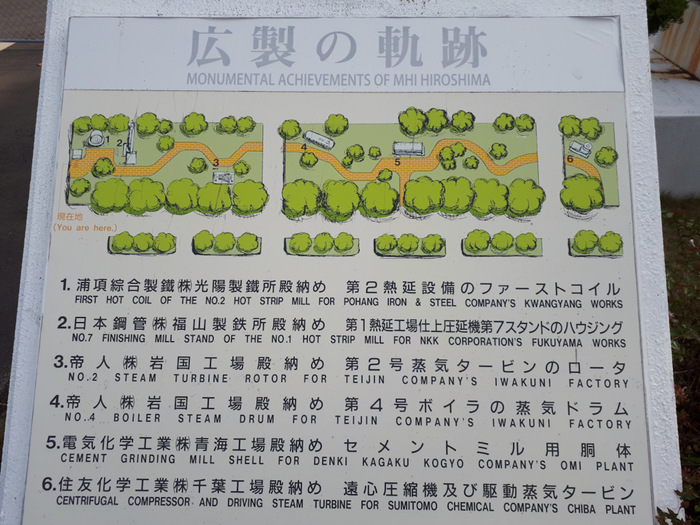 広製の軌跡
MONUMENTAL ACHIEVEMENTS OF MHI HIROSHIMA
1
2
3
4
5
6
現在地
(You are here.)
1. 浦項綜合製鐵㈱光陽製鐵所殿納め 第2熱延設備のファーストコイル
FIRST HOT COIL OF THE NO.2 HOT STRIP MILL FOR POHANG IRON & STEEL COMPANY'S KWANGYANG WORKS
2. 日本鋼管㈱福山製鉄所殿納め 第1熱延工場仕上圧延機第7スタンドのハウジング
NO.7 FINISHING MILL STAND OF THE NO.1 HOT STRIP MILL FOR NKK CORPORATION'S FUKUYAMA WORKS
3. 帝人㈱岩国工場殿納め 第2号蒸気タービンのロータ
NO.2 STEAM TURBINE ROTOR FOR TEIJIN COMPANY'S IWAKUNI FACTORY
4. 帝人㈱岩国工場殿納め 第4号ボイラの蒸気ドラム
NO.4 BOILER STEAM DRUM FOR TEIJIN COMPANY'S IWAKUNI FACTORY
5. 電気化学工業㈱青海工場殿納め セメントミル用胴体
CEMENT GRINDING MILL SHELL FOR DENKI KAGAKU KOGYO COMPANY'S OMI PLANT
6. 住友化学工業㈱千葉工場殿納め 遠心圧縮機及び駆動蒸気タービン
CENTRIFUGAL COMPRESSOR AND DRIVING STEAM TURBINE FOR SUMITOMO CHEMICAL COMPANY'S CHIBA PLANT